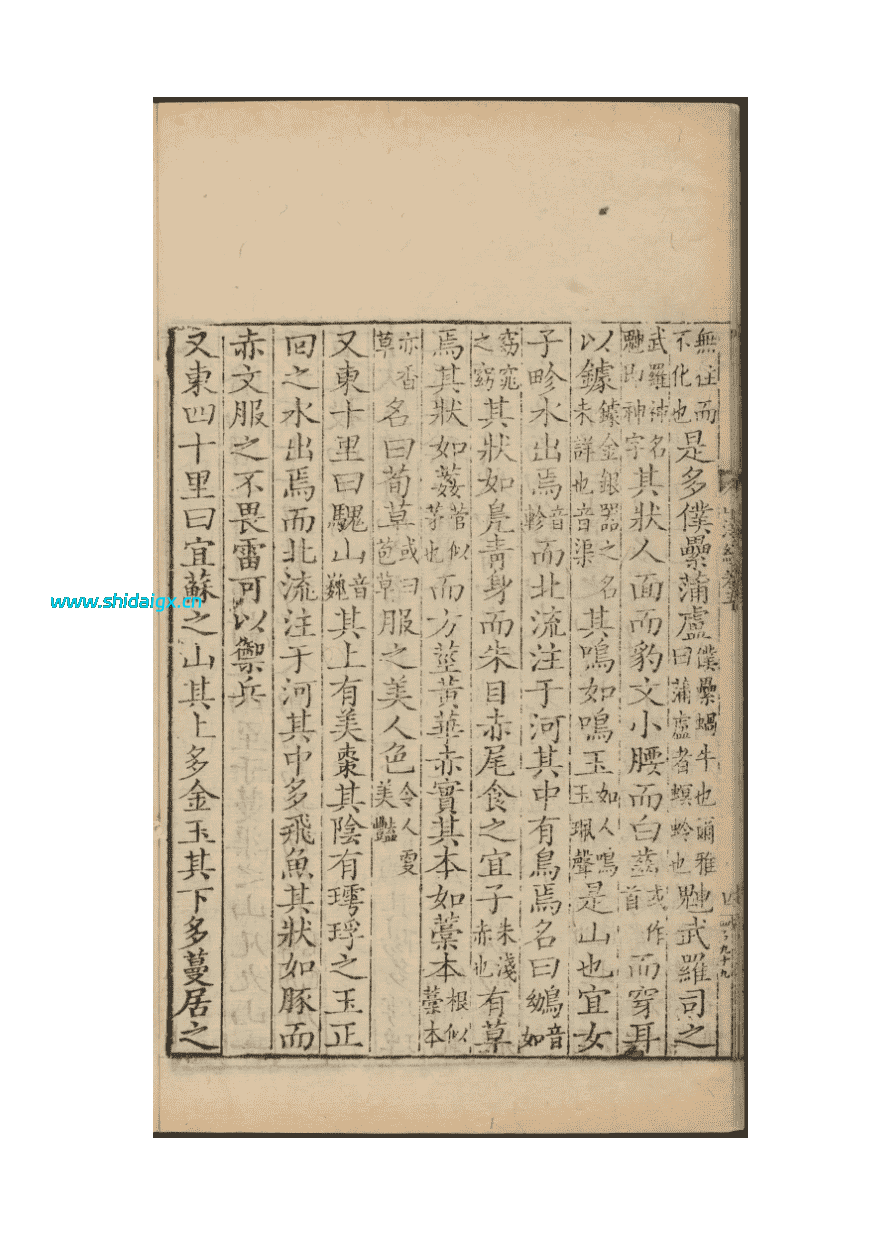 無往而不化也是多僕纍蒲盧僕纍蝸牛也爾雅曰蒲盧者螟蛉也䰠武羅司之
武羅神名䰠即神字其狀人面而豹文小腰而白齒或作首而穿耳
以鐻鐻金銀器之名未詳也音渠其鳴如鳴玉如人鳴玉珮聲是山也宜女
子畛水出焉音軫而北流注于河其中有鳥焉名曰鴢音如
窈窕之窈其狀如鳧青身而朱目赤尾食之宜子朱淺赤也有草
焉其狀如葌菅似茅也而方莖黃華赤實其本如藁本根似藁本
亦香草名曰荀草或曰苞草服之美人色令人更美豔
又東十里曰騩山音巍其上有美棗其陰有㻬琈之玉正
回之水出焉而北流注于河其中多飛魚其狀如豚而
赤文服之不畏雷可以禦兵
又東四十里曰宜蘇之山其上多金玉其下多蔓居之
www.shidaigx.cn